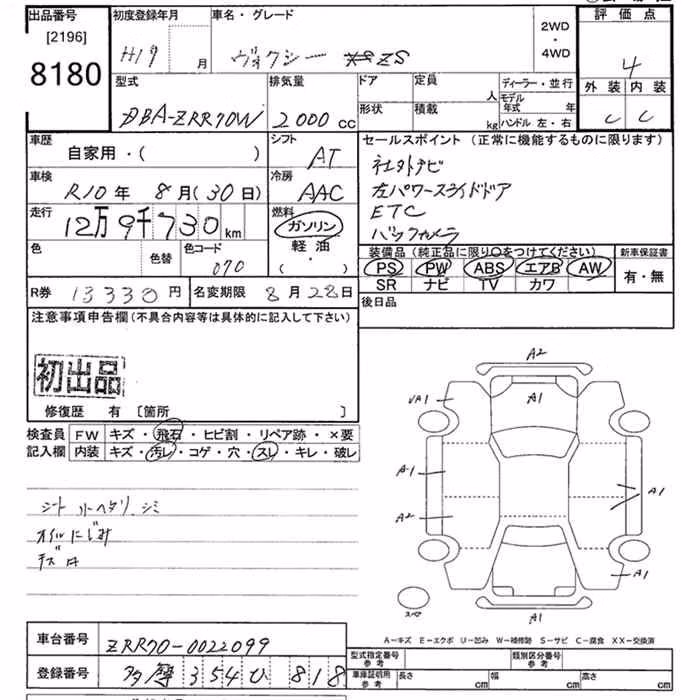 出品番号 初度登録年月 車名・グレード 評価点
[2196] H19 月 ヴォクシー ZS 2WD・4WD 4
8180 外装 内装
型式 排気量 ドア 定員 ディーラー・並行 C C
DBA-ZRR70W 2000cc 人 モデル年式 年
形状 積載 kg ハンドル 左・右
車歴 シフト セールスポイント (正常に機能するものに限ります)
自家用・( ) AT 社外ナビ
車検 冷房 左パワースライドドア
R10年 8月(30日) AAC ETC
走行 燃料 バックカメラ
12万9千730km ガソリン
色 色替 色コード 軽油 装備品(純正品に限り○をつけてください) 新車保証書
070 (・) PS PW ABS エアB AW 有・無
SR ナビ TV カワ
R券 13330円 名変期限 8月28日 後日品
注意事項申告欄(不具合内容等は具体的に記入して下さい)
初出品
修復歴 有 [箇所 ]
検査員 FW キズ・飛石・ヒビ割・リペア跡・×要
記入欄 内装 キズ・汚レ・コゲ・穴・スレ・キレ・破レ
A2
A1
A1
A1
A2
A1
A1
A1
シート 小ヘタリ.シミ
オイルにじみ
スペア
A-キズ E-エクボ U-凹み W-補修跡 S-サビ C-腐食 XX-交換済
車台番号 ZRR70-0022099 型式指定番号 参考 類別区分番号 参考
登録番号 354 ひ 818 車庫証明用 参考 長さ cm 幅 cm 高さ cm